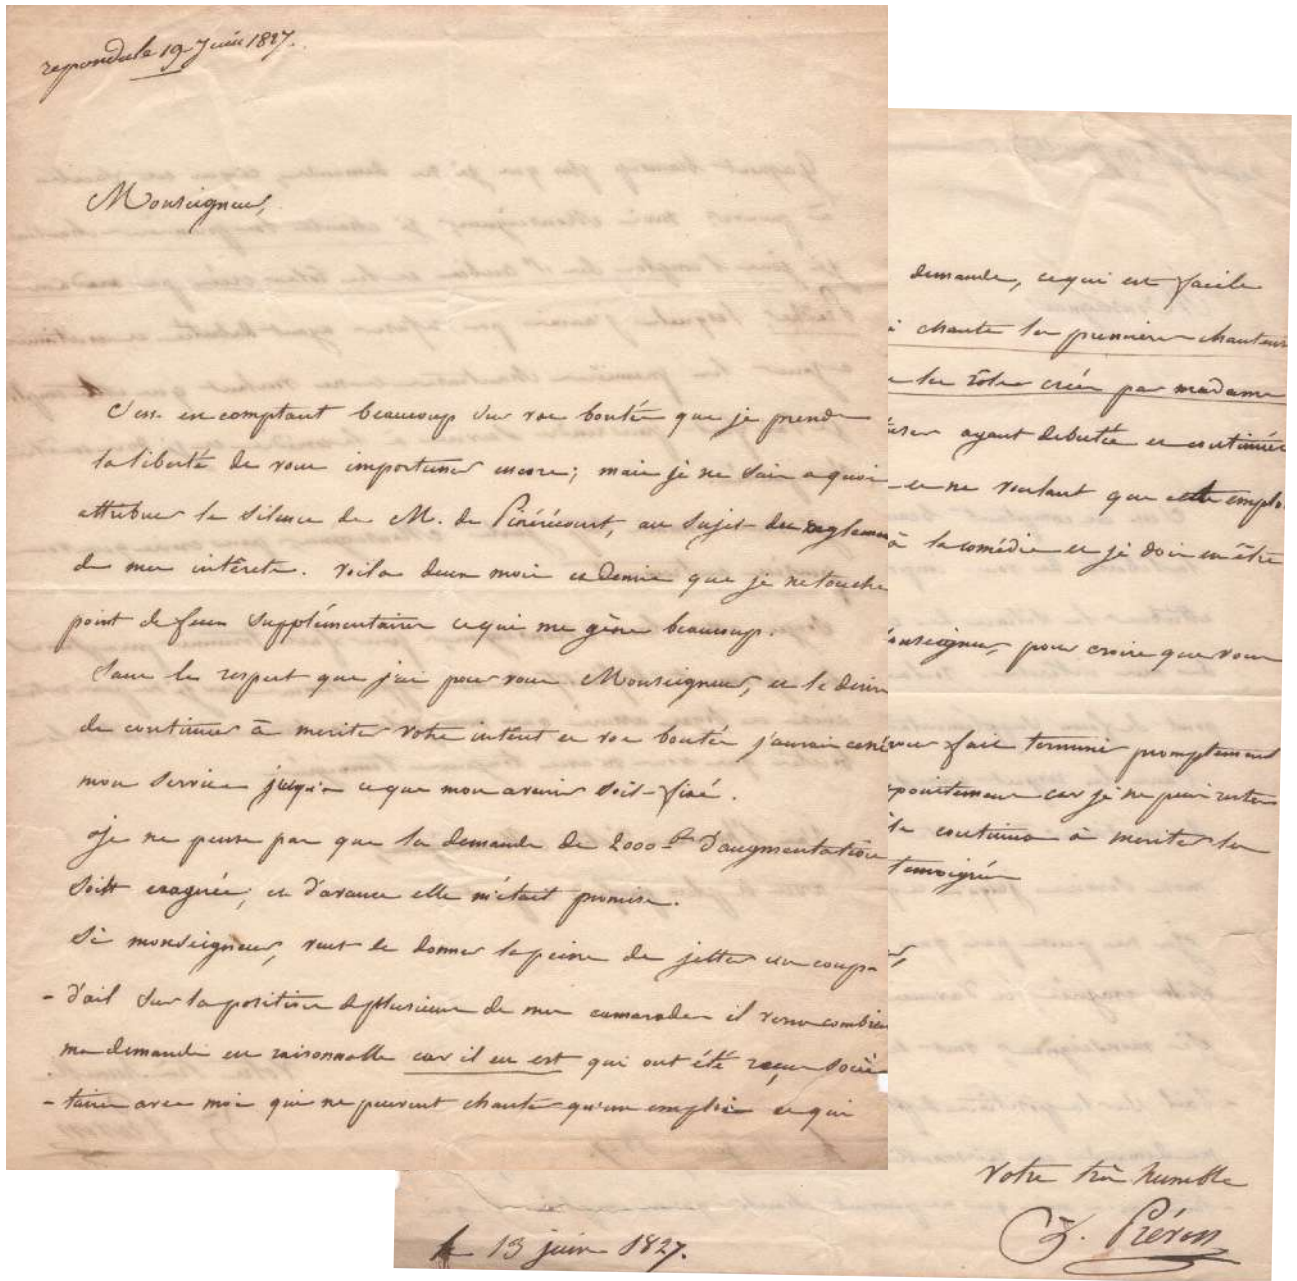 repondu le 19 Juin 1827.
Monseigneur,
C'est en comptant beaucoup sur vos bontés que je prends
la liberté de vous importuner encore; mais je ne sais a quoi
attribuer le silence de M. de Pixérécourt, au sujet des reglemens
de mes intêrets. voila deux mois et demie que je ne touche
point de feux supplémentaires ce qui me gêne beaucoup.
Sans le respect que j'ai pour vous Monseigneur, et le désir
de continuer à meriter votre intérêt et vos bontés j'aurais cessé
mon service jusqu'a ce que mon avenir soit fixé.
Je ne pense pas que la demande de 2000 f d'augmentation
soit exagérée, et d'avance elle m'était promise.
Si monseigneur, veut se donner la peine de jetter un coup-
- d'œil sur la position de plusieurs de mes camarades il verra combien
ma demande est raisonnable car il en est qui ont été reçus socié
- taires avec moi qui ne peuvent chanter qu'un emploi et qui
demande, ce qui est facile
chante les premieres chanteuses
les rôles créés par madame
ayant debutée et continuée
et ne voulant que cette emploi
à la comédie et je dois en être
Monseigneur, pour croire que vous
fait terminer promptement
car je ne puis rester
continue à meriter les
temoignés
votre très humble
Prévost
le 13 juin 1827.